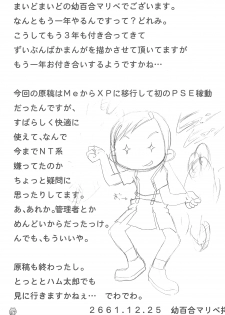 まいどまいどの幼百合マリベでございます。
なんともう一年やるんですって？どれみ。
こうしてもう３年も付き合ってきて
ずいぶんばかまんがを描かさせて頂いてますが
もう一年お付き合いするようですかね…
今回の原稿はＭｅからＸＰに移行して初のＰＳＥ稼動
だったんですが、
すばらしく快適に
使えて、なんで
今までＮＴ系
嫌ってたのか
ちょっと疑問に
思ったりしてます。
あ、あれか。管理者とか
めんどいからだったっけ。
んでも、もういいや。
原稿も終わったし。
とっととハム太郎でも
見に行きますかねぇ… でわでわ。
2661.12.25 幼百合マリベ拝